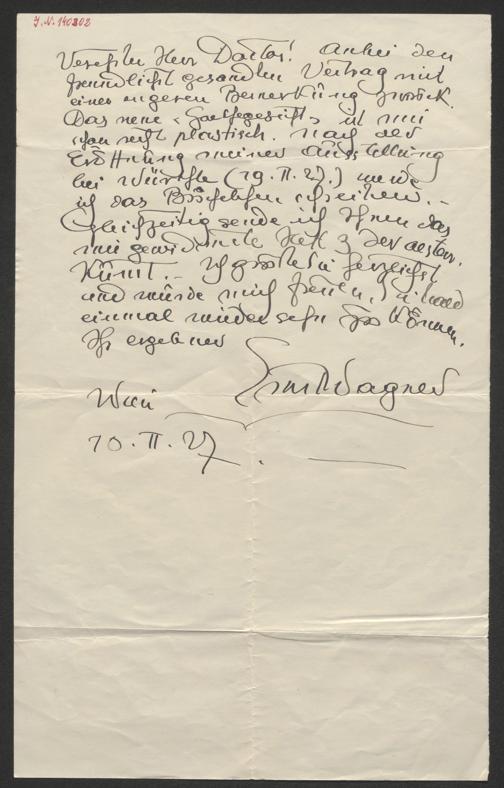 J.N. 140802
Verehrter Herr Doctor! Anbei den
freundlichst gesandten Vertrag mit
einer engeren Bemerkung zurück.
Das neue "Goethegesicht" ist mir
schon recht plastisch. Nach der
Eröffnung meiner Ausstellung
bei Würthle (19. II. 27.) werde
ich das Büchelchen schreiben. –
Gleichzeitig sende ich Ihnen das
mir gewidmete Heft 3 der oesterr.
Kunst. – Ich grüße Sie herzlichst
und würde mich freuen, Sie bald
einmal wieder sehn zu können.
Ihr ergebener
Ernst Wagner
Wien
10. II. 27.